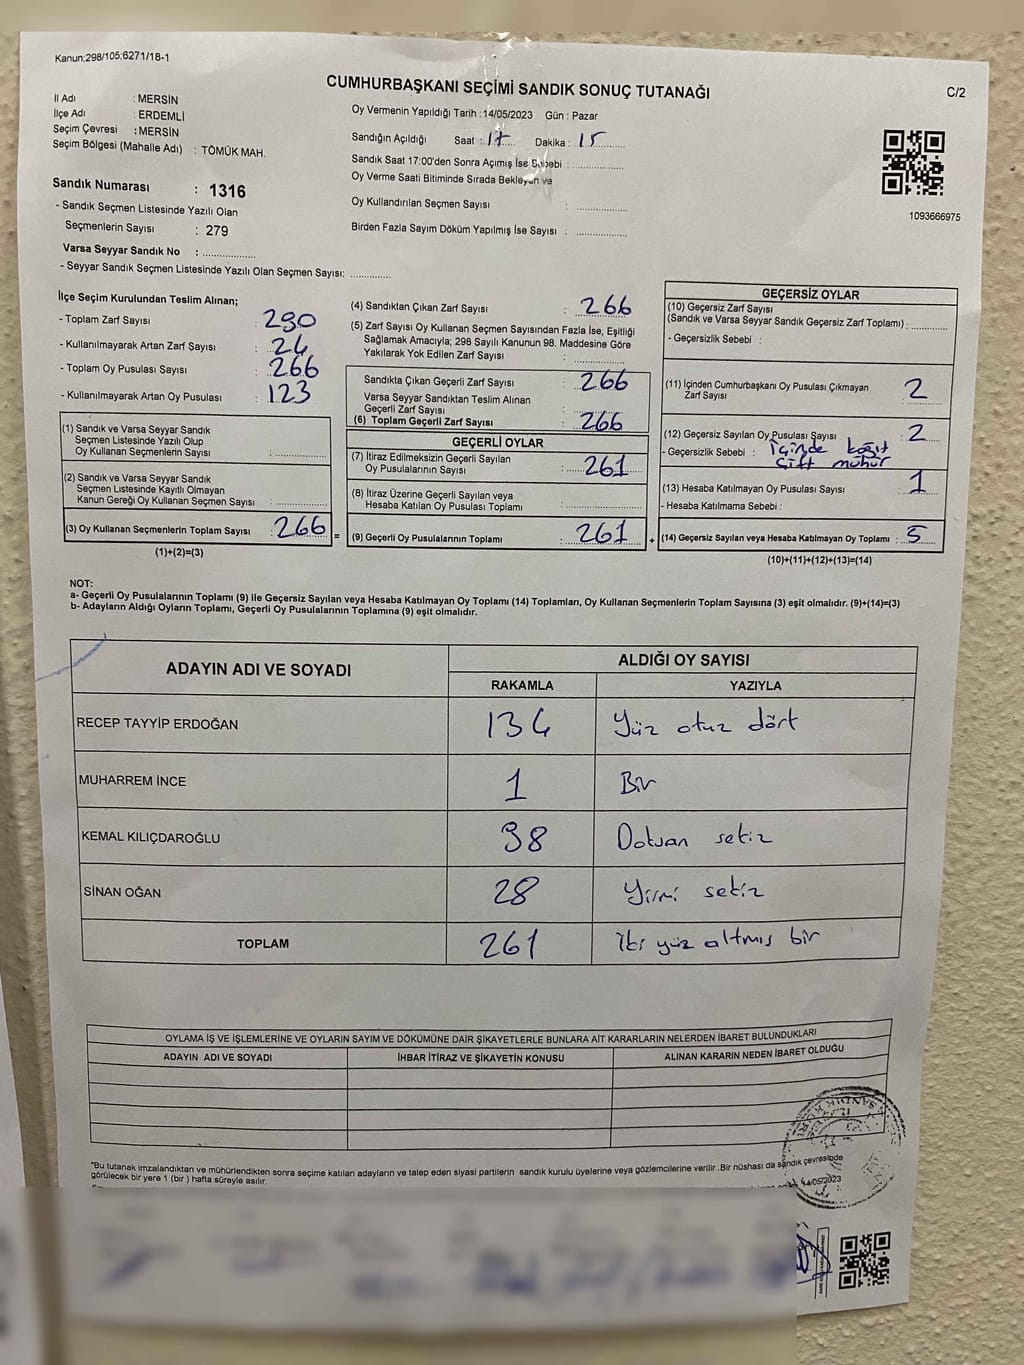 Kanun:298/105;6271/18-1
CUMHURBAŞKANI SEÇİMİ SANDIK SONUÇ TUTANAĞI
C/2
İl Adı : MERSİN
İlçe Adı : ERDEMLİ
Seçim Çevresi : MERSİN
Seçim Bölgesi (Mahalle Adı) : TÖMÜK MAH.
Oy Vermenin Yapıldığı Tarih : 14/05/2023 Gün : Pazar
Sandığın Açıldığı Saat : 17 Dakika : 15
Sandık Saat 17:00'den Sonra Açımış İse Sebebi :
Oy Verme Saati Bitiminde Sırada Bekleyen ve
Oy Kullandırılan Seçmen Sayısı :
Birden Fazla Sayım Döküm Yapılmış İse Sayısı :
1093666975
Sandık Numarası : 1316
- Sandık Seçmen Listesinde Yazılı Olan
Seçmenlerin Sayısı : 279
Varsa Seyyar Sandık No :
- Seyyar Sandık Seçmen Listesinde Yazılı Olan Seçmen Sayısı:
İlçe Seçim Kurulundan Teslim Alınan;
- Toplam Zarf Sayısı : 290
- Kullanılmayarak Artan Zarf Sayısı : 24
- Toplam Oy Pusulası Sayısı : 266
- Kullanılmayarak Artan Oy Pusulası : 123
(1) Sandık ve Varsa Seyyar Sandık
Seçmen Listesinde Yazılı Olup
Oy Kullanan Seçmenlerin Sayısı :
(2) Sandık ve Varsa Seyyar Sandık
Seçmen Listesinde Kayıtlı Olmayan
Kanun Gereği Oy Kullanan Seçmen Sayısı :
(3) Oy Kullanan Seçmenlerin Toplam Sayısı : 266 =
(1)+(2)=(3)
(4) Sandıktan Çıkan Zarf Sayısı : 266
(5) Zarf Sayısı Oy Kullanan Seçmen Sayısından Fazla İse, Eşitliği
Sağlamak Amacıyla; 298 Sayılı Kanunun 98. Maddesine Göre
Yakılarak Yok Edilen Zarf Sayısı :
Sandıkta Çıkan Geçerli Zarf Sayısı : 266
Varsa Seyyar Sandıktan Teslim Alınan
Geçerli Zarf Sayısı :
(6) Toplam Geçerli Zarf Sayısı : 266
GEÇERLİ OYLAR
(7) İtiraz Edilmeksizin Geçerli Sayılan
Oy Pusulalarının Sayısı : 261
(8) İtiraz Üzerine Geçerli Sayılan veya
Hesaba Katılan Oy Pusulaları Toplamı :
(9) Geçerli Oy Pusulalarının Toplamı : 261 +
GEÇERSİZ OYLAR
(10) Geçersiz Zarf Sayısı
(Sandık ve Varsa Seyyar Sandık Geçersiz Zarf Toplamı) :
- Geçersizlik Sebebi :
(11) İçinden Cumhurbaşkanı Oy Pusulası Çıkmayan
Zarf Sayısı : 2
(12) Geçersiz Sayılan Oy Pusulası Sayısı : 2
- Geçersizlik Sebebi : İçinde kağıt
çift mühür
(13) Hesaba Katılmayan Oy Pusulası Sayısı : 1
- Hesaba Katılmama Sebebi :
(14) Geçersiz Sayılan veya Hesaba Katılmayan Oy Toplamı : 5
(10)+(11)+(12)+(13)=(14)
NOT:
a- Geçerli Oy Pusulalarının Toplamı (9) ile Geçersiz Sayılan veya Hesaba Katılmayan Oy Toplamı (14) Toplamları, Oy Kullanan Seçmenlerin Toplam Sayısına (3) eşit olmalıdır. (9)+(14)=(3)
b- Adayların Aldığı Oyların Toplamı, Geçerli Oy Pusulalarının Toplamına (9) eşit olmalıdır.
ADAYIN ADI VE SOYADI
ALDIĞI OY SAYISI
RAKAMLA YAZIYLA
RECEP TAYYİP ERDOĞAN 134 Yüz otuz dört
MUHARREM İNCE 1 Bir
KEMAL KILIÇDAROĞLU 98 Doksan sekiz
SİNAN OĞAN 28 Yirmi sekiz
TOPLAM 261 İki yüz altmış bir
OYLAMA İŞ VE İŞLEMLERİNE VE OYLARIN SAYIM VE DÖKÜMÜNE DAİR ŞİKAYETLERLE BUNLARA AİT KARARLARIN NELERDEN İBARET BULUNDUKLARI
ADAYIN ADI VE SOYADI İHBAR İTİRAZ VE ŞİKAYETİN KONUSU ALINAN KARARIN NEDEN İBARET OLDUĞU
*Bu tutanak imzalandıktan ve mühürlendikten sonra seçime katılan adayların ve talep eden siyasi partilerin sandık kurulu üyelerine veya gözlemcilerine verilir .Bir nüshası da sandık çevresinde
görülecek bir yere 1 (bir) hafta süreyle asılır.
14/05/2023